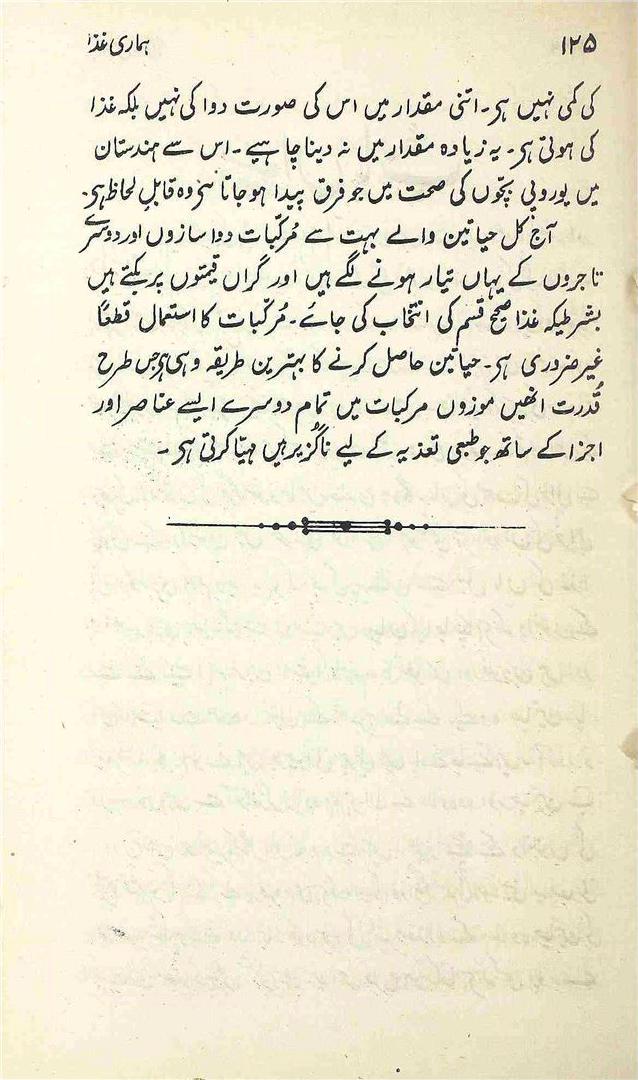 ۱۲۵ ہماری غذا
کی کمی نہیں ہی۔ اتنی مقدار میں اس کی صورت دوا کی نہیں بلکہ غذا
کی ہوتی ہی۔ یہ زیادہ مقدار میں نہ دینا چاہیے۔ اس سے ہندستان
میں یوروپی بچّوں کی صحت میں جو فرق پیدا ہو جاتا ہی وہ قابلِ لحاظ ہی۔
آج کل حیاتین والے بہت سے مُرکّبات دوا سازوں اور دوسرے
تاجروں کے یہاں تیار ہونے لگے ہیں اور گراں قیمتوں پر بکتے ہیں
بشرطیکہ غذا صحیح قسم کی انتخاب کی جائے۔ مُرکّبات کا استمال قطعًا
غیر ضروری ہی۔ حیاتین حاصل کرنے کا بہترین طریقہ وہی ہی جس طرح
قُدرت انھیں موزوں مرکبات میں تمام دوسرے ایسے عناصر اور
اجزا کے ساتھ جو طبعی تغذیہ کے لیے ناگُزیر ہیں مہیّا کرتی ہی۔